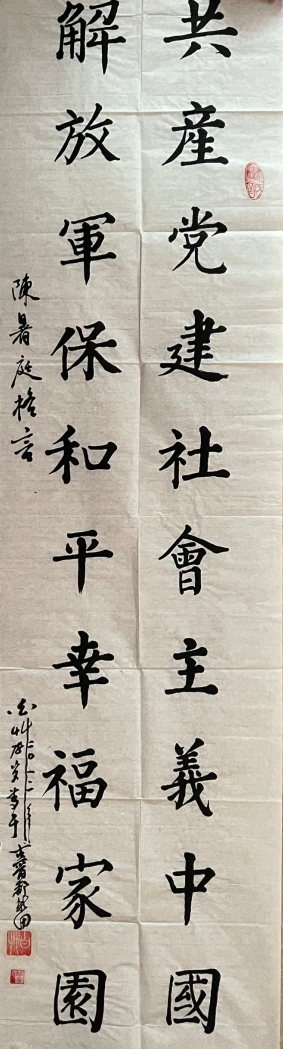 共産党建社會主義中國
解放軍保和平幸福家園
陳暑庭格言